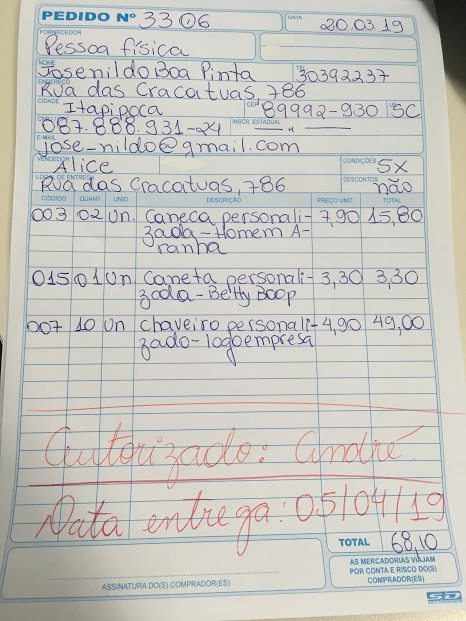 PEDIDO Nº 3306
DATA 20.03.19
FORNECEDOR
Pessoa física
NOME
Josenildo Boa Pinta
TEL 30392237
ENDEREÇO
Rua das Cracatuas, 786
CIDADE Itapipoca CEP 89992-930 UF SC
087.888.931-24 INSCR. ESTADUAL — " —
E-MAIL
jose_nildo@gmail.com
VENDEDOR Alice CONDIÇÕES 5X
LOCAL DE ENTREGA DESCONTOS
Rua das Cracatuas, 786 não
CÓDIGO QUANT UNID. DESCRIÇÃO PREÇO UNIT. TOTAL
003 02 Un. Caneca personali- 7,90 15,80
zada-Homem A-
ranha
015 01 Un Caneta personali- 3,30 3,30
zada-Betty Boop
007 10 Un chaveiro personali- 4,90 49,00
zado-logo empresa
Autorizado: André.
Data entrega: 05/04/19
TOTAL 68,10
ASSINATURA DO(S) COMPRADOR(ES)
AS MERCADORIAS VIAJAM
POR CONTA E RISCO DO(S)
COMPRADOR(ES)
SD